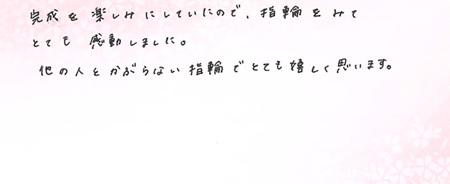 完成を楽しみにしていたので、指輪をみて
とても感動しました。
他の人とかぶらない指輪でとても嬉しく思います。